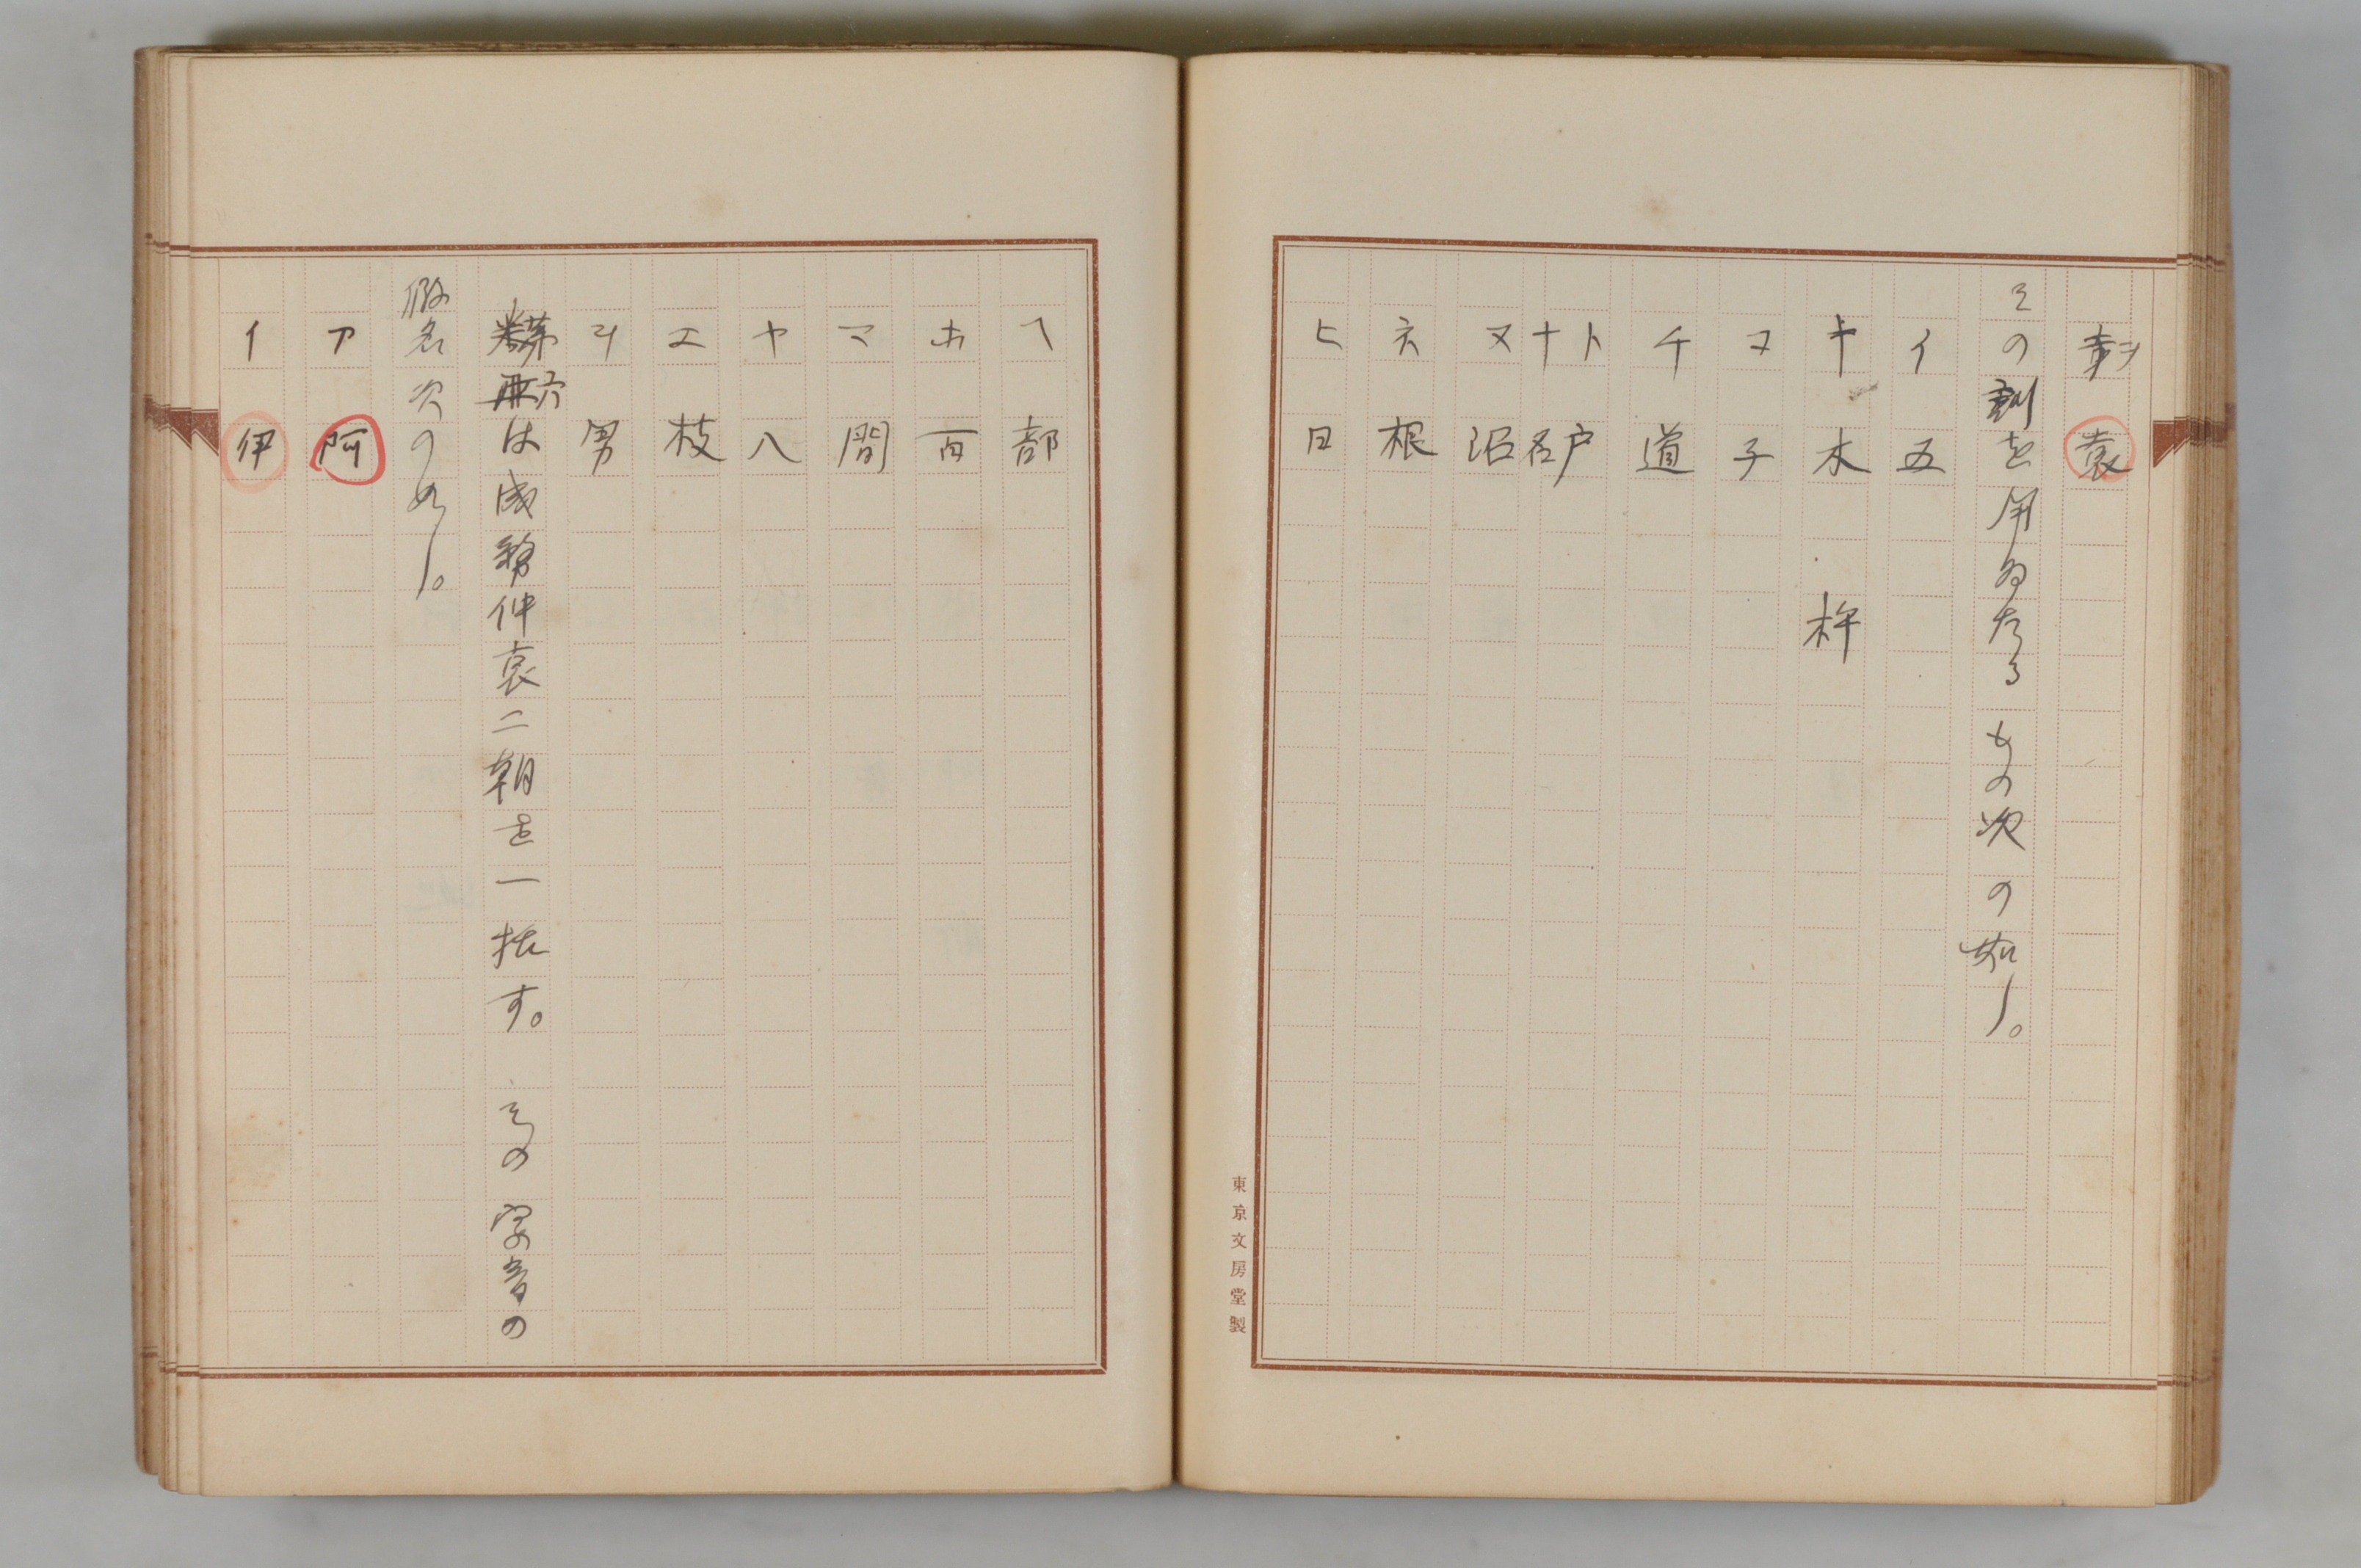 ヲ 袁
その訓を用ゐたるもの次の如し。
イ 五
キ 木 杵
コ 子
チ 道
ト 戸
ナ 名
ヌ 沼
ネ 根
ヒ 日
東京文房堂製
ヘ 部
ホ 百
マ 間
ヤ 八
エ 枝
ヲ 男
第六は成務仲哀二朝を一括す。その字音の
假名次の如し。
ア 阿
イ 伊